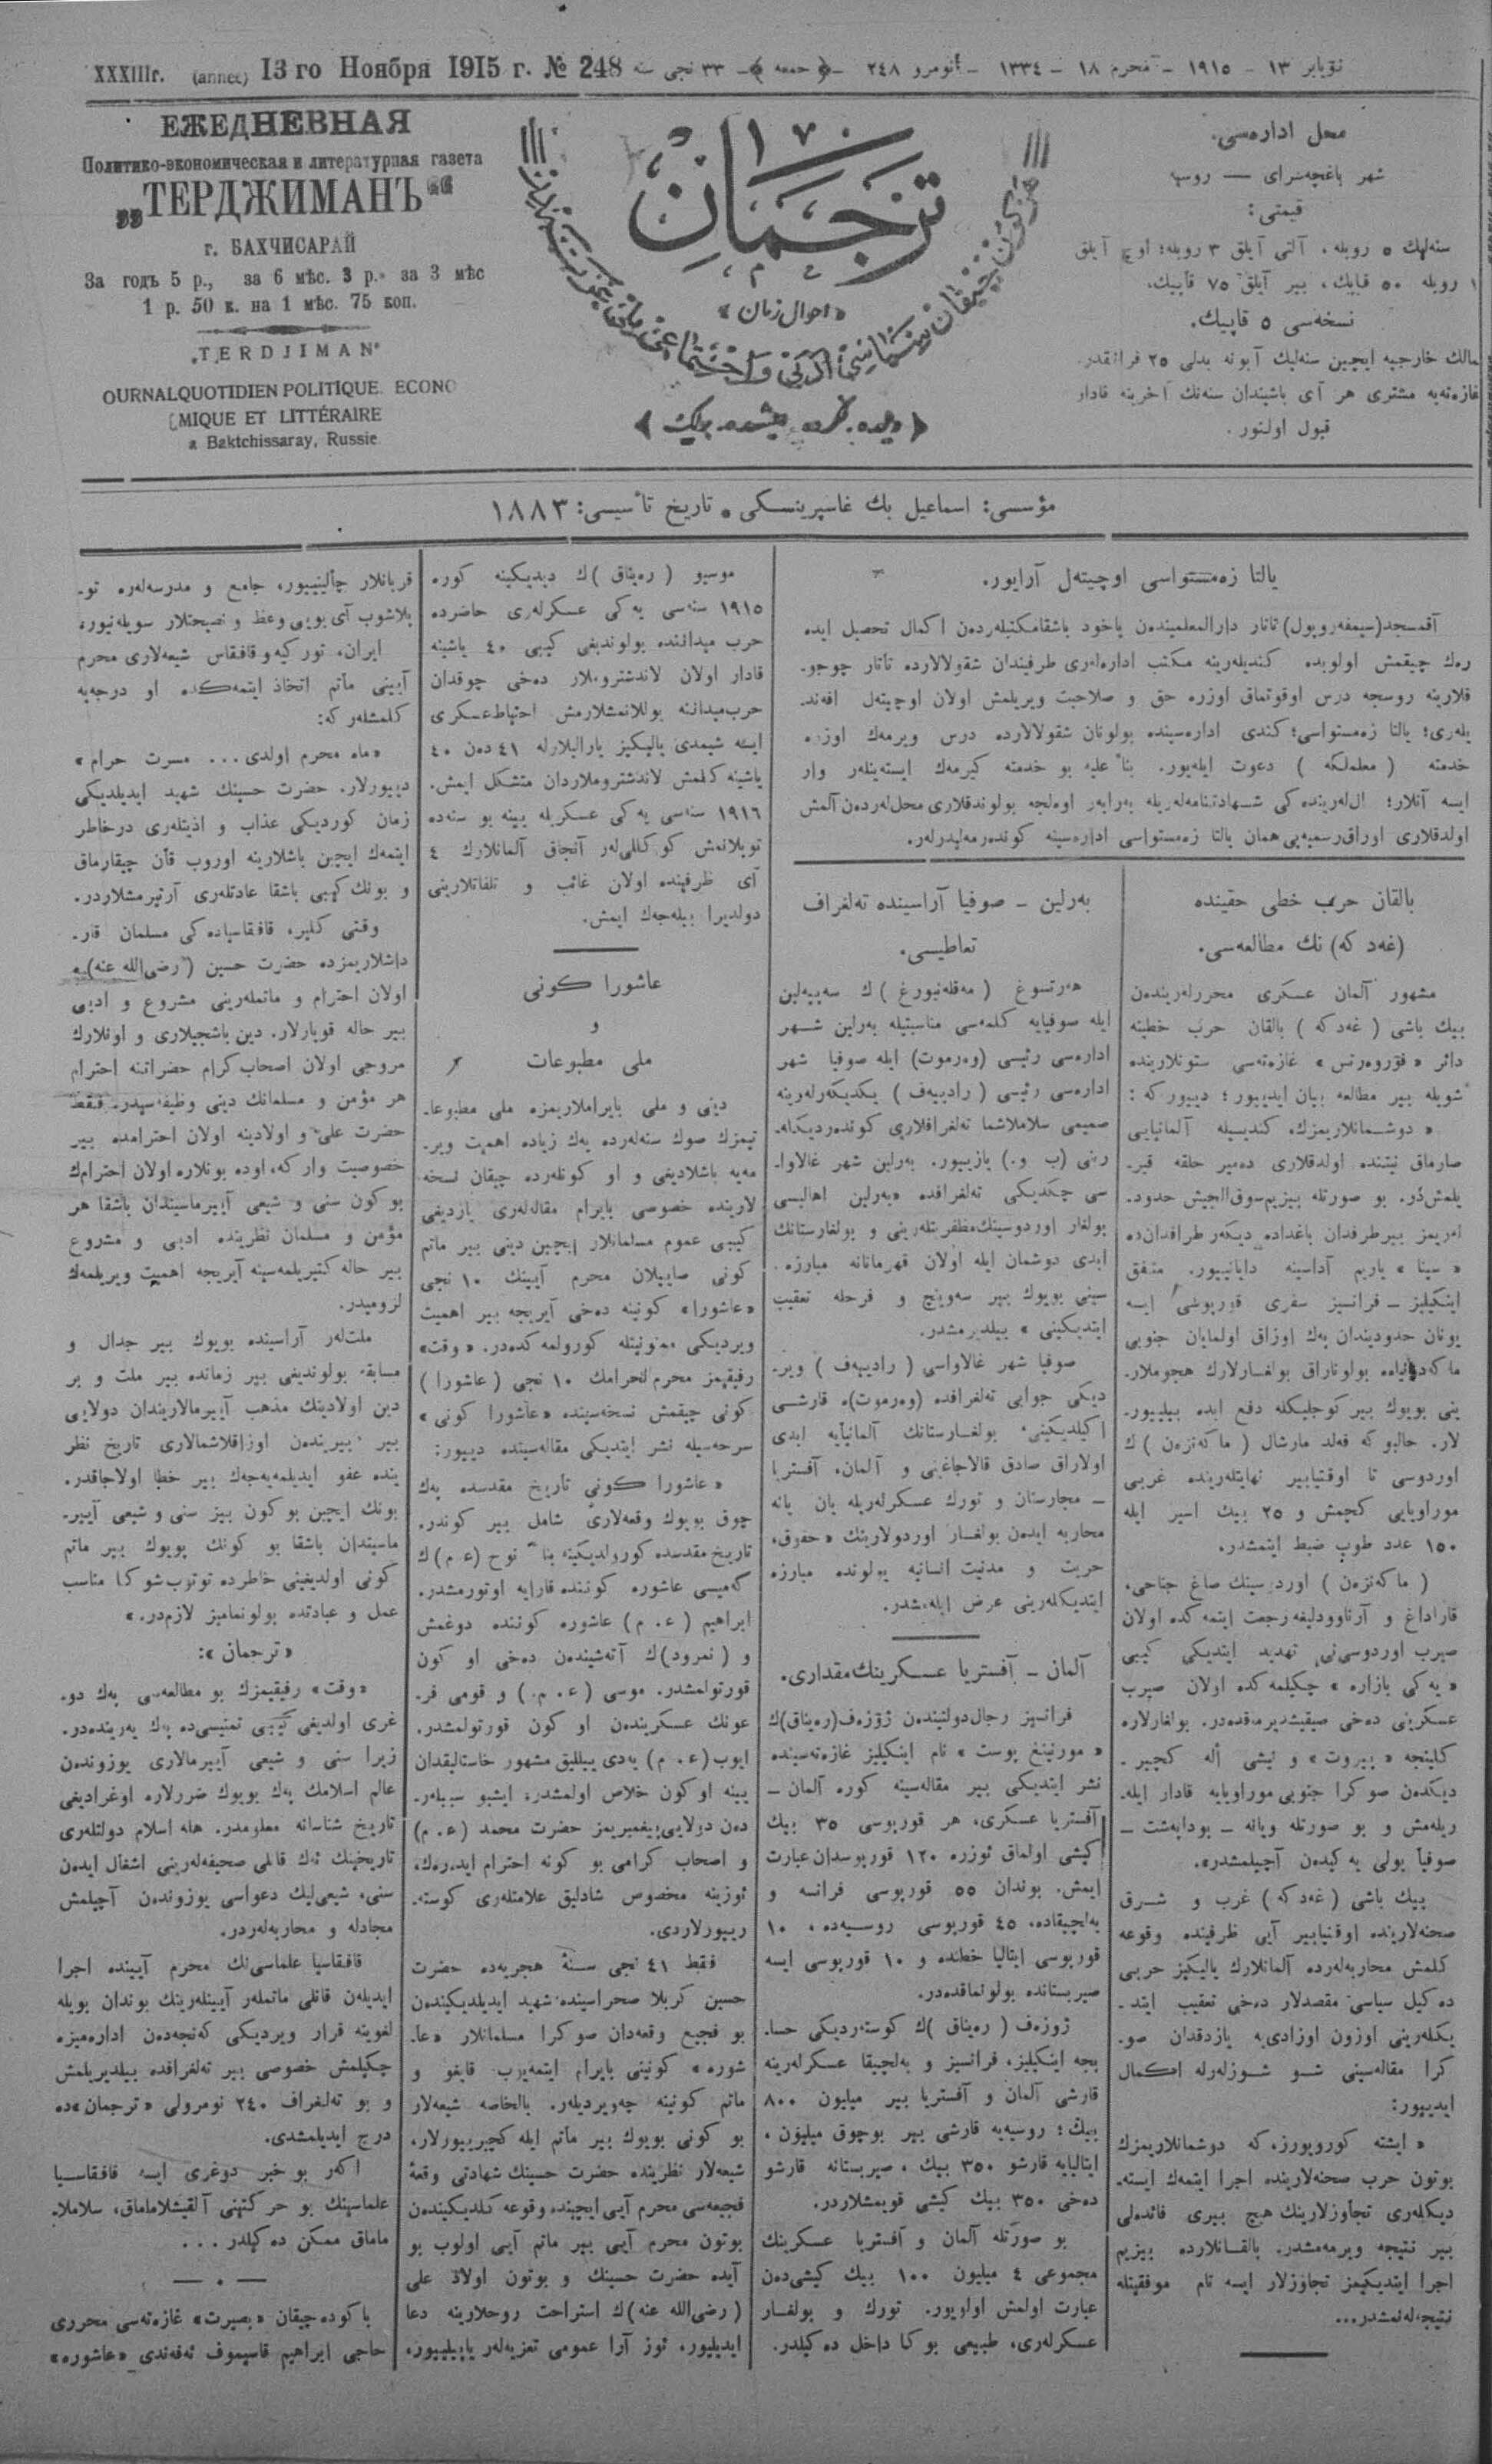 XXXIIIг. (année) 13го Ноября 1915 г. № 248
نویابر ١٣ – ١٩١٥ – محرم ١٨ – ١٣٣٤ – نومرو ٢٤٨ – ﴿ جمعه ﴾ – ٣٣ نجی سنه
ЕЖЕДНЕВНАЯ
Политико-экономическая и литературная газета
„ТЕРДЖИМАНЪ“
г. БАХЧИСАРАЙ
За годъ 5 р., за 6 мѣс. 3 р. за 3 мѣс
1 р. 50 к. на 1 мѣс. 75 коп.
„TERDJIMAN“
OURNALQUOTIDIEN POLITIQUE. ECONO
MIQUE ET LITTÉRAIRE
a Baktchissaray, Russie
ترجمان
«احوال زمان»
«دیلده، فکرده، ایشده، برلیك»
محل اداره‌سی.
شهر باغچه‌سرای — روسیه
قیمتی:
سنه‌لیك ٥ روبله، آلتی آیلق ٣ روبله؛ اوچ آیلق
١ روبله ٥٠ قاپیك، بیر آیلق ٧٥ قاپیك،
نسخه‌سی ٥ قاپیك.
مالك خارجیه ایچین سنه‌لیك آبونه بدلی ٢٥ فرانقدر.
غازه‌ته‌یه مشتری هر آی باشیندان سنه‌نك آخرینه قادار
قبول اولنور.
مؤسسی: اسماعیل بك غاسپرینسکی • تاریخ تأسیسی: ١٨٨٣
یالتا زه‌مستواسی اوچیته‌ل آرایور.
آقمسجد(سیمفه‌روپول) تاتار دارالمعلمیندن یاخود باشقامکتبله‌ردن اکمال تحصیل ایده
ره‌ك چیقمش اولوبده کندیله‌رینه مکتب اداره‌له‌ری طرفیندان شقولالارده تاتار چوجو-
قلارینه روسجه درس اوقوتماق اوزره حق و صلاحیت ویریلمش اولان اوچیته‌ل افند-
یله‌ری؛ یالتا زه‌مستواسی؛ کندی اداره‌سینده بولونان شقولالارده درس ویرمه‌ك اوزره
خدمته ( معلملکه ) دعوت ایله‌یور. بناءً علیه بو خدمته کیرمه‌ك ایسته‌ینله‌ر وار
ایسه آنلار؛ ال‌له‌رینده کی شهادتنامه‌له‌ریله به‌رابه‌ر اوه‌لجه بولوندقلاری محل‌له‌ردن آلمش
اولدقلاری اوراق رسمیه‌یی همان یالتا زه‌مستواسی اداره‌سینه کونده‌رمه‌لیدرله‌ر.
بالقان حرب خطی حقینده
(غه‌د که) نك مطالعه‌سی.
مشهور آلمان عسکری محررله‌ریندن
بیك باشی ( غه‌دکه ) بالقان حرب خطینه
دائر « فوروه‌رتس » غازه‌ته‌سی ستونلارینده
شویله بیر مطالعه بیان ایدییور؛ دییورکه :
« دوشمانلاریمزك، کندیسیله آلمانیایی
صارماق نیتنده اولدقلاری ده‌میر حلقه قیر-
یلمش‌در. بو صورتله بیزیم سوق‌الجیش حدود-
لریمز بیر طرفدان باغداده دیکه‌ر طرافدان‌ده
« سینا » یاریم آداسینه دایانییور. متفق
اینکیلیز – فرانسیز سفری قورپوسی ایسه
یونان حدودیندان په‌ك اوزاق اولمایان جنوبی
ماکه‌دونیاده بولوناراق بولغارلارك هجوملار-
ینی بویوك بیر کوجلیکله دفع ایده بیلییور-
لار. حالبو که فه‌لد مارشال ( ماکه‌نزه‌ن )ك
اوردوسی تا اوقتیابیر نهایتله‌رینده غربی
موراوایی کچمش و ٢٥ بیك اسیر ایله
١٥٠ عدد طوپ ضبط ایتمشدر.
( ماکه‌نزه‌ن ) اوردوسینك صاغ جناحی،
قاراداغ و آرناوودلیغه رجعت ایتمه کده اولان
صیرب اوردوسی‌نی تهدید ایتدیکی کیبی
« یه کی بازاره » چکیلمه‌کده اولان صیرب
عسکرینی ده‌خی صیقیشدیرماقده‌در. بولغارلاره
کلینجه « پیروت » و نیشی اله کچیر-
دیکدن صوکرا جنوبی موراوایه قادار ایله-
ریله‌مش و بو صورتله ویانه – بوداپه‌شت –
صوفیا یولی یه کیدن آچیلمشدر».
بیك باشی ( غه‌دکه ) غرب و شرق
صحنه‌لارینده اوقتیابیر آیی ظرفینده وقوعه
کلمش محاربه‌له‌رده آلمانلارك یالیکیز حربی
ده کیل سیاسی مقصدلار ده‌خی تعقیب ایتد-
یکله‌رینی اوزون اوزادی‌یه یازدقدان صو-
کرا مقاله‌سینی شو سوزله‌رله اکمال
ایدییور:
« ایشته کورویورز، که دوشمانلاریمزك
بوتون حرب صحنه‌لارینده اجرا ایتمه‌ك ایسته-
دیکله‌ری تجاوزلارینك هیچ بیری فائده‌لی
بیر نتیجه ویرمه‌مشدر. بالقانلارده بیزیم
اجرا ایتدیکیمز تجاوزلار ایسه تام موفقیتله
نتیجه‌له‌نمشدر...
به‌رلین – صوفیا آراسینده ته‌لغراف
تعاطیسی.
هه‌رتسوغ ( مه‌قله‌نبورغ )ك سه‌ببه‌لین
ایله صوفیایه کلمه‌سی مناسبتیله به‌رلین شهر
اداره‌سی رئیسی (وه‌رموت) ایله صوفیا شهر
اداره‌سی رئیسی ( رادییه‌ف ) یکدیکه‌رله‌رینه
صمیمی سلاملاشما ته‌لغرافلاری کونده‌ردیکله-
رینی (پ و.) یازییور. به‌رلین شهر غالاوا-
سی چکدیکی ته‌لغرافده «به‌رلین اهالیسی
بولغار اوردوسینك مظفریتله‌رینی و بولغارستانك
ابدی دوشمان ایله اولان قهرمانانه مبارزه-
سینی بویوك بیر سه‌وینج و فرحله تعقیب
ایتدیکینی » بیلدیرمشدر.
صوفیا شهر غالاواسی ( رادییه‌ف ) ویر-
دیکی جوابی ته‌لغرافده (وه‌رموت)ه قارشی
اکیلدیکینی، بولغارستانك آلمانیایه ابدی
اولاراق صادق قالاجاغینی و آلمان، آفستریا
– مجارستان و تورك عسکرله‌ریله یان یانه
محاربه ایدن بولغار اوردولارینك « حقوق،
حریت و مدنیت انسانیه یولونده مبارزه
ایتدیکله‌رینی عرض ایله‌مشدر.
آلمان – آفستریا عسکرینك مقداری.
فرانسیز رجال دولتیندن ژوزه‌ف(ره‌یناق)ك
« مورنینغ پوست » نام اینکیلیز غازه‌ته‌سینده
نشر ایتدیکی بیر مقاله‌سینه کوره آلمان –
آفستریا عسکری، هر قورپوسی ٣٥ بیك
کیشی اولماق ئوزره ١٢٠ قورپوسدان عبارت
ایمش. بوندان ٥٥ قورپوسی فرانسه و
به‌لچیقاده، ٤٥ قورپوسی روسیه‌ده، ١٠
قورپوسی ایتالیا خطنده و ١٠ قورپوسی ایسه
صیربستانده بولونماقده‌در.
ژوزه‌ف ( ره‌یناق )ك کوسته‌ردیکی حسا-
بجه اینکیلیز، فرانسیز و به‌لچیقا عسکرله‌رینه
قارشی آلمان و آفستریا بیر میلیون ٨٠٠
بیك؛ روسیه‌یه قارشی بیر بوچوق میلیون،
ایتالیایه قارشو ٣٥٠ بیك، صیربستانه قارشو
ده‌خی ٣٥٠ بیك کیشی قویمشلاردر.
بو صورتله آلمان و آفستریا عسکرینك
مجموعی ٤ میلیون ١٠٠ بیك کیشی‌دن
عبارت اولمش اولویور. تورك و بولغار
عسکرله‌ری، طبیعی بو کا داخل ده کیلدر.
موسیو ( ره‌یناق )ك دیدیکینه کوره
١٩١٥ سنه‌سی یه کی عسکرله‌ری حاضرده
حرب میداننده بولوندیغی کیبی ٤٠ یاشینه
قادار اولان لاندشتورملار ده‌خی چوقدان
حرب میداننه یوللانمشلارمش احتیاط عسکری
ایسه شیمدی یالیکیز یارالیلارله ٤١ دن ٤٠
یاشینه کلمش لاندشتورملاردان متشکل ایمش.
١٩١٦ سنه‌سی یه کی عسکریله یینه بو سنه‌ده
توپلانمش کوکللی‌له‌ر آنجاق آلمانلارك ٤
آی ظرفینده اولان غائب و تلفاتلارینی
دولدیرا بیله‌جه‌ك ایمش.
عاشورا کونی
و
ملی مطبوعات
دینی و ملی بایراملاریمزه ملی مطبوعا-
تیمزك صوك سنه‌له‌رده په‌ك زیاده اهمیت ویر-
مه‌یه باشلادیغی و او کونله‌رده چیقان نسخه
لارینده خصوصی بایرام مقاله‌له‌ری یازدیغی
کیبی عموم مسلمانلار ایچین دینی بیر ماتم
کونی صاییلان محرم آیینك ١٠ نجی
«عاشورا» کونینه ده‌خی آیریجه بیر اهمیت
ویردیکی ممنونیتله کورولمه کده‌در. «وقت»
رفیقیمز محرم‌الحرامك ١٠ نجی ( عاشورا )
کونی چیقمش نسخه‌سینده «عاشورا کونی»
سرحه‌سیله نشر ایتدیکی مقاله‌سینده دییور:
« عاشورا کونی تاریخ مقدسده په‌ك
چوق بویوك وقعه‌لاری شامل بیر کوندر.
تاریخ مقدسده کورولدیکینه بناءً نوح (ع.م)ك
گه‌میسی عاشوره کوننده قارایه اوتورمشدر.
ابراهیم (ع.م) عاشوره کوننده دوغمش
و (نمرود)ك آته‌شیندن ده‌خی او کون
قورتولمشدر. موسی (ع.م.) و قومی فر-
عونك عسکریندن او کون قورتولمشدر.
ایوب (ع.م) یه‌دی ییللیق مشهور خاستالیقدان
یینه او کون خلاص اولمشدر، ایشبو سببله‌ر-
دن دولایی پیغمبریمز حضرت محمد (ع.م)
و اصحاب کرامی بو کونه احترام ایده‌ره‌ك،
ئوزینه مخصوص شادلیق علامتله‌ری کوسته-
رییورلاردی.
فقط ٤١ نجی سنهٔ هجریه‌ده حضرت
حسین کربلا صحراسینده شهید ایدیلدیکیندن
بو فجیع وقعه‌دان صوکرا مسلمانلار «عا-
شوره» کونینی بایرام ایتمه‌یوب قایغو و
ماتم کونینه چه‌ویردیله‌ر. بالخاصه شیعه‌لار
بو کونی بویوك بیر ماتم ایله کچیرییورلار.
شیعه‌لار نظرینده حضرت حسینك شهادتی وقعهٔ
فجیعه‌سی محرم آیی ایچینده وقوعه کلدیکیندن
بوتون محرم آیی بیر ماتم آیی اولوب بو
آیده حضرت حسینك و بوتون اولاد علی
(رضی‌الله عنه)ك استراحت روحلارینه دعا
ایدیلیور، ئوز آرا عمومی تعزیه‌له‌ر یاپیلییور،
قربانلار چالینییور، جامع و مدرسه‌له‌ره تو-
پلاشوب آی بویی وعظ و نصیحتلار سویله‌نیور،
ایران، تورکیه و قافقاس شیعه‌لاری محرم
آیینی ماتم اتخاذ ایتمه‌کده او درجه‌یه
کلمشله‌ر که:
«ماه محرم اولدی... مسرت حرام»
دییورلار. حضرت حسینك شهید ایدیلدیکی
زمان کوردیکی عذاب و اذیتله‌ری درخاطر
ایتمه‌ك ایچین باشلارینه اوروب قان چیقارماق
و بونك کیبی باشقا عادتله‌ری آرتیرمشلاردر.
وقتی کلیر، قافقاسیاده کی مسلمان قار-
داشلاریمزده حضرت حسین (رضی‌الله عنه)ه
اولان احترام و ماتمله‌رینی مشروع و ادبی
بیر حاله قویارلار. دین باشجیلاری و اونلارك
مروجی اولان اصحاب کرام حضراتنه احترام
هر مؤمن و مسلمانك دینی وظیفه‌سیدر. فقط
حضرت علی و اولادینه اولان احترامده بیر
خصوصیت وار که، اوده بونلاره اولان احترامك
بو کون سنی و شیعی آییرماسیندان باشقا هر
مؤمن و مسلمان نظرینده ادبی و مشروع
بیر حاله کتیریلمه‌سینه آیریجه اهمیت ویریلمه‌ك
لزومیدر.
ملت‌له‌ر آراسینده بویوك بیر جدال و
مسابقه بولوندیغی بیر زمانده بیر ملت و بر
دین اولادینك مذهب آییرمالاریندان دولایی
بیر بیریندن اوزاقلاشمالاری تاریخ نظر
ینده عفو ایدیلمه‌یه‌جه‌ك بیر خطا اولاجاقدر.
بونك ایچین بو کون بیز سنی و شیعی آییر-
ماسیندان باشقا بو کونك بویوك بیر ماتم
کونی اولدیغینی خاطرده توتوب شوکا مناسب
عمل و عبادتده بولونمامیز لازم‌در.»
«ترجمان»:
«وقت» رفیقیمزك بو مطالعه‌سی په‌ك دو-
غری اولدیغی کیبی تمنیسی‌ده په‌ك یه‌رینده‌در.
زیرا سنی و شیعی آییرمالاری یوزوندن
عالم اسلامك په‌ك بویوك ضررلاره اوغرادیغی
تاریخ شناسانه معلومدر. هله اسلام دولتله‌ری
تاریخینك ئه‌ك قانلی صحیفه‌له‌رینی اشغال ایدن
سنی، شیعی‌لیك دعواسی یوزوندن آچیلمش
مجادله و محاربه‌له‌ردر.
قافقاسیا علماسی‌نك محرم آیینده اجرا
ایدیلن قانلی ماتملر آیینله‌رینك بوندان بویله
لغوینه قرار ویردیکی که‌نجه‌دن اداره‌میزه
چکیلمش خصوصی بیر ته‌لغرافده بیلدیریلمش
و بو ته‌لغراف ٢٤٠ نومرولی «ترجمان»ده
درج ایدیلمشدی.
اکه‌ر بو خبر دوغری ایسه قافقاسیا
علماسینك بو حرکتینی آلقیشلاماماق، سلاملا-
ماماق ممکن ده کیلدر...
باکوده چیقان «بصیرت» غازه‌ته‌سی محرری
حاجی ابراهیم قاسیموف ئه‌فه‌ندی «عاشوره»